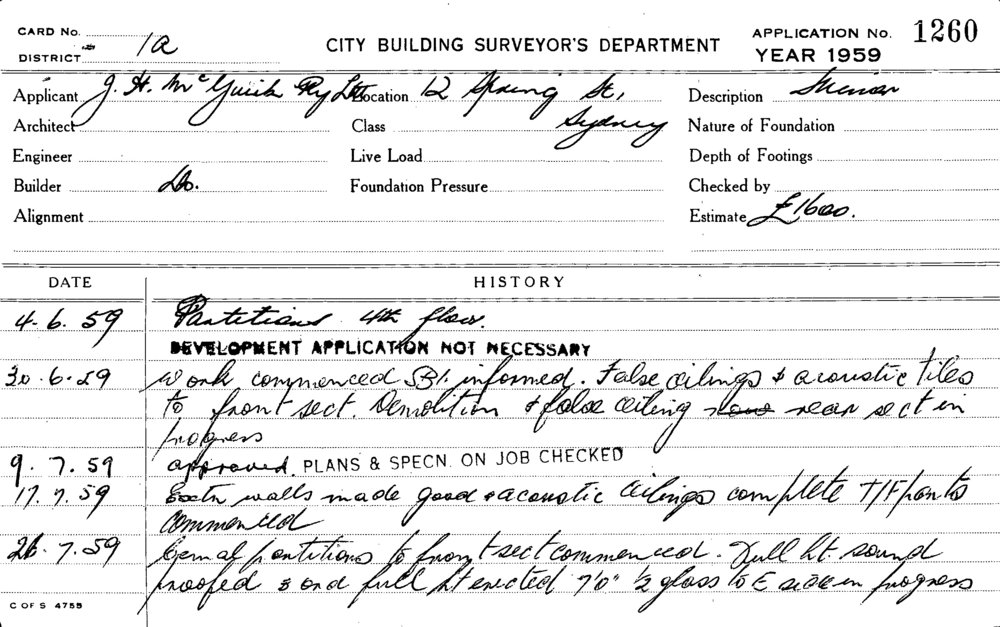 CARD No.
DISTRICT 1a
CITY BUILDING SURVEYOR'S DEPARTMENT
APPLICATION No. 1260
YEAR 1959
Applicant J. H. McGuirk Pty Ltd Location 12 Spring St, Description Minor
Architect Class Sydney Nature of Foundation
Engineer Live Load Depth of Footings
Builder Do. Foundation Pressure Checked by
Alignment Estimate £1600.
DATE HISTORY
4. 6. 59 Partitions 4th floor.
DEVELOPMENT APPLICATION NOT NECESSARY
30. 6. 59 Work commenced informed. False ceilings & acoustic tiles
to front sect. Demolition & false ceiling rear sect in
progress
9. 7. 59 approved. PLANS & SPECN. ON JOB CHECKED
17. 7. 59 walls made good & acoustic ceilings complete
commenced
26. 7. 59 partitions to front sect commenced. Full ht. sound
proofed & full ht erected 7'0" ½ glass to E side in progress
C OF S 4755